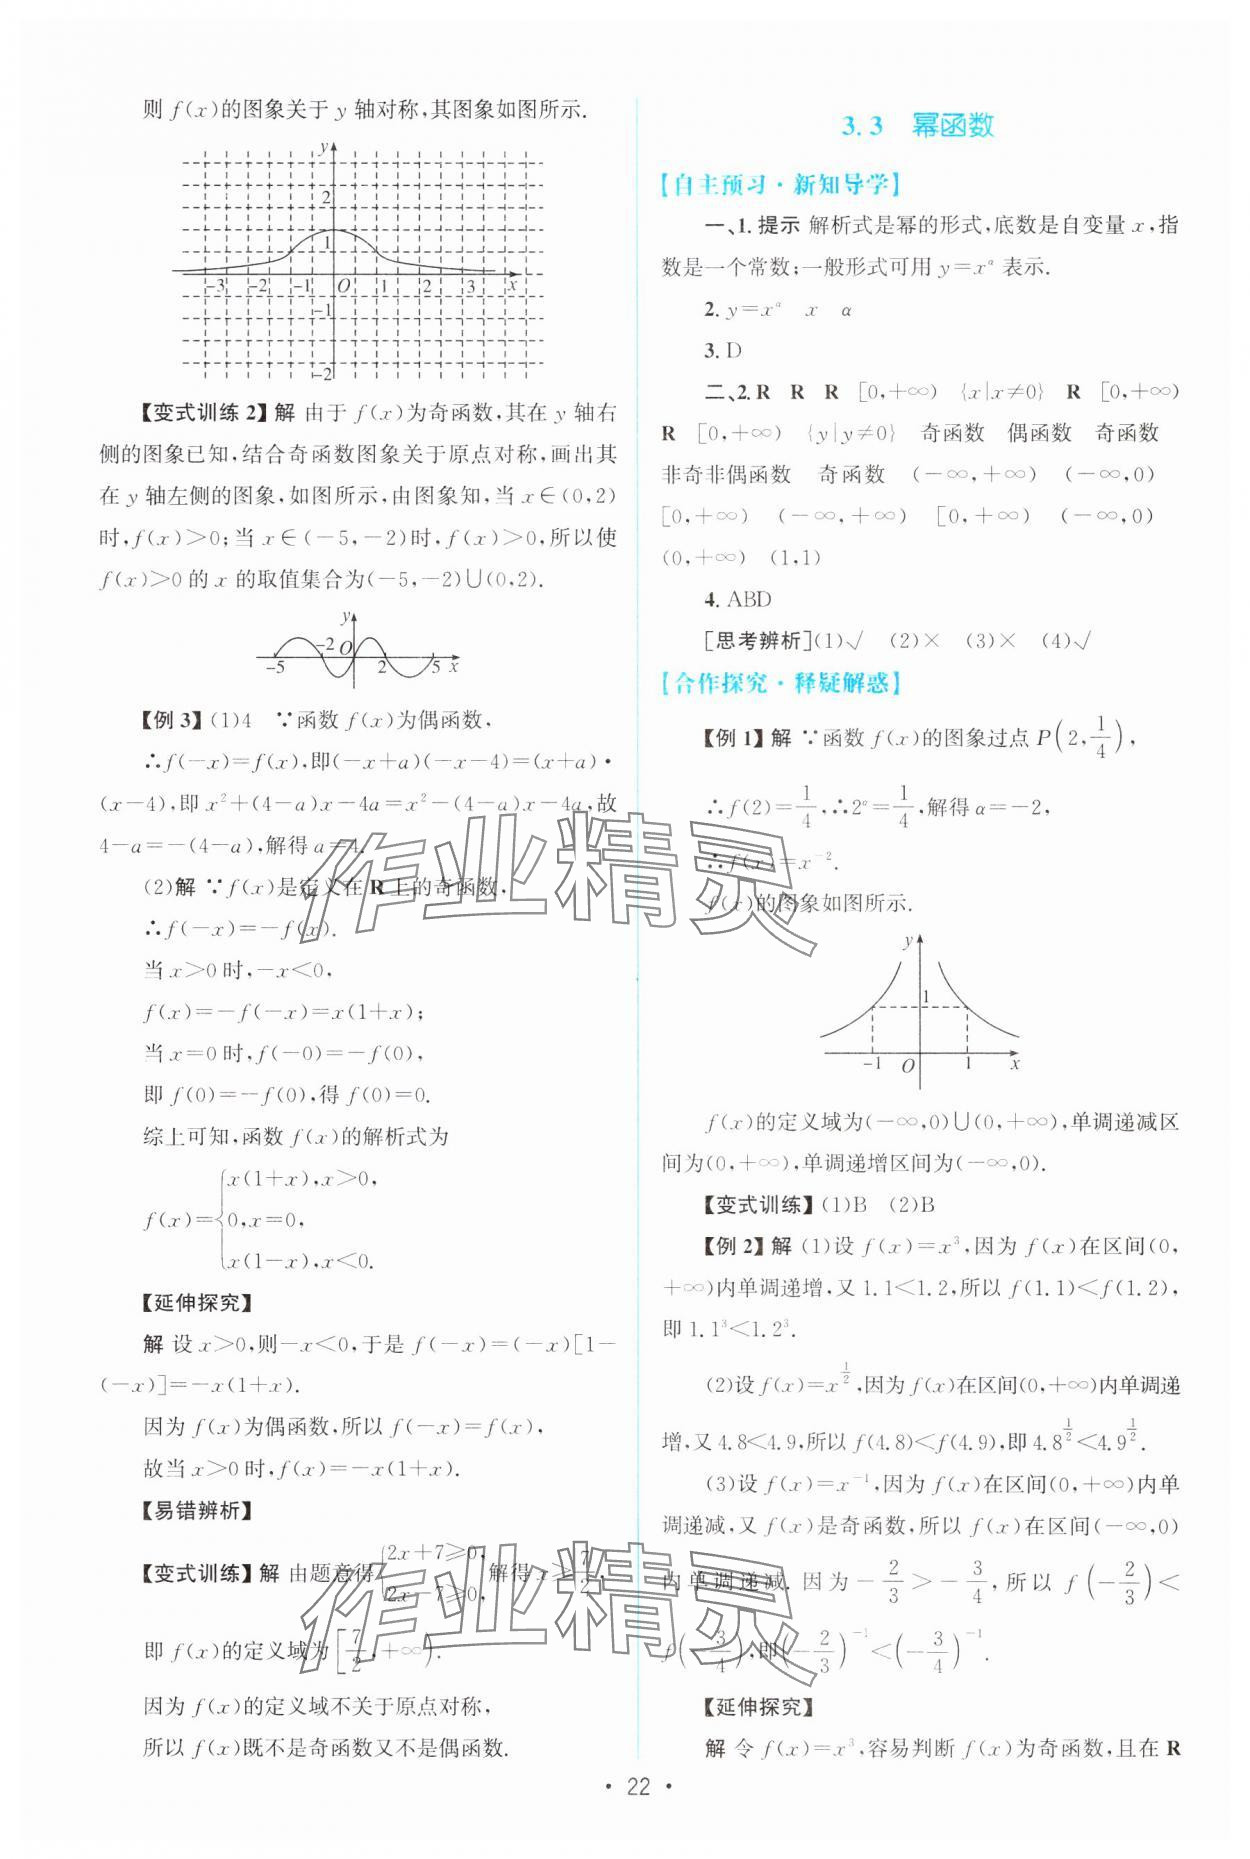 则 f(x)的图象关于 y 轴对称,其图象如图所示.
y
2
1
-3 -2 -1 O 1 2 3 x
-1
-2
【变式训练 2】解 由于 f(x)为奇函数,其在 y 轴右
侧的图象已知,结合奇函数图象关于原点对称,画出其
在 y 轴左侧的图象,如图所示,由图象知,当 x∈(0,2)
时,f(x)>0;当 x∈(-5,-2)时,f(x)>0,所以使
f(x)>0 的 x 的取值集合为(-5,-2)∪(0,2).
y
-2 O
-5 2 5 x
【例 3】(1)4 ∵函数 f(x)为偶函数,
∴f(-x)=f(x),即(-x+a)(-x-4)=(x+a)·
(x-4),即 x²+(4-a)x-4a=x²-(4-a)x-4a,故
4-a=-(4-a),解得 a=4.
(2)解 ∵f(x)是定义在 R 上的奇函数,
∴f(-x)=-f(x).
当 x>0 时,-x<0,
f(x)=-f(-x)=x(1+x);
当 x=0 时,f(-0)=-f(0),
即 f(0)=-f(0),得 f(0)=0.
综上可知,函数 f(x)的解析式为
x(1+x),x>0,
f(x)={0,x=0,
x(1-x),x<0.
【延伸探究】
解 设 x>0,则-x<0,于是 f(-x)=(-x)[1-
(-x)]=-x(1+x).
因为 f(x)为偶函数,所以 f(-x)=f(x),
故当 x>0 时,f(x)=-x(1+x).
【易错辨析】
【变式训练】解 由题意得{2x+7≥0, 2x-7≥0, 解得 x≥7/2,
即 f(x)的定义域为[7/2,+∞).
因为 f(x)的定义域不关于原点对称,
所以 f(x)既不是奇函数又不是偶函数.
3.3 幂函数
【自主预习·新知导学】
一、1.提示 解析式是幂的形式,底数是自变量 x,指
数是一个常数;一般形式可用 y=x^α 表示.
2. y=x^α x α
3. D
二、2. R R R [0,+∞) {x|x≠0} R [0,+∞)
R [0,+∞) {y|y≠0} 奇函数 偶函数 奇函数
非奇非偶函数 奇函数 (-∞,+∞) (-∞,0)
[0,+∞) (-∞,+∞) [0,+∞) (-∞,0)
(0,+∞) (1,1)
4. ABD
[思考辨析](1)√ (2)× (3)× (4)√
【合作探究·释疑解惑】
【例 1】解 ∵函数 f(x)的图象过点 P(2,1/4),
∴f(2)=1/4,∴2^α=1/4,解得 α=-2,
∴f(x)=x⁻².
f(x)的图象如图所示.
y
1
-1 O 1 x
f(x)的定义域为(-∞,0)∪(0,+∞),单调递减区
间为(0,+∞),单调递增区间为(-∞,0).
【变式训练】(1)B (2)B
【例 2】解 (1)设 f(x)=x³,因为 f(x)在区间(0,
+∞)内单调递增,又 1.1<1.2,所以 f(1.1)<f(1.2),
即 1.1³<1.2³.
(2)设 f(x)=x^(1/2),因为 f(x)在区间(0,+∞)内单调递
增,又 4.8<4.9,所以 f(4.8)<f(4.9),即 4.8^(1/2)<4.9^(1/2).
(3)设 f(x)=x⁻¹,因为 f(x)在区间(0,+∞)内单
调递减,又 f(x)是奇函数,所以 f(x)在区间(-∞,0)
内单调递减.因为-2/3>-3/4,所以 f(-2/3)<
f(-3/4),即(-2/3)⁻¹<(-3/4)⁻¹.
【延伸探究】
解 令 f(x)=x³,容易判断 f(x)为奇函数,且在 R
· 22 ·
作业精灵
作业精灵